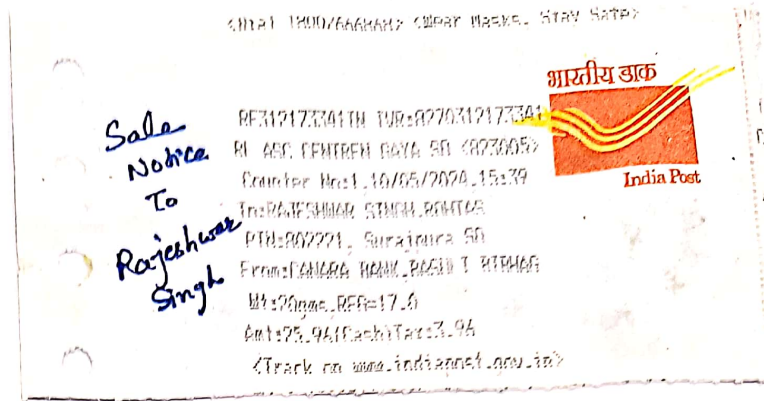 <Dial 18002666868> <Wear Masks, Stay Safe>
भारतीय डाक
India Post
RF312173341IN IVR:8270312173341
RL ASC CENTREM GAYA SO <823005>
Counter No:1,10/05/2024,15:39
To:RAJESHWAR SINGH,ROHTAS
PIN:802221, Surajpura SO
From:CANARA BANK,
Wt:20gms,REG=17.0
Amt:25.96(Cash)Tax:3.96
<Track on www.indiapost.gov.in>
Sale
Notice
To
Rajeshwar
Singh